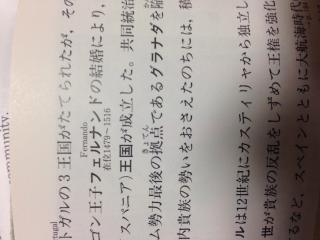 community.
tugal
トガルの3王国がたてられたが、その
Fernando
在位1479~1516
ゴン王子フェルナンドの結婚により、
スパニア)王国が成立した。共同統治
きょてん
ム勢力最後の拠点であるグラナダを陥
内貴族の勢いをおさえたのちには、積
ルは12世紀にカスティリャから独立し
世が貴族の反乱をしずめて王権を強化
るなど、スペインとともに大航海時代